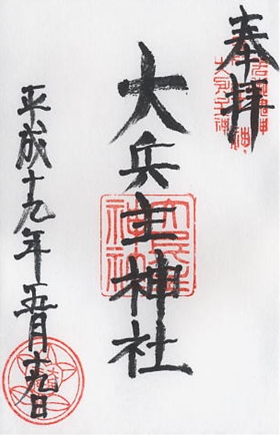 奉拝
大兵主神社
平成十九年五月十九日